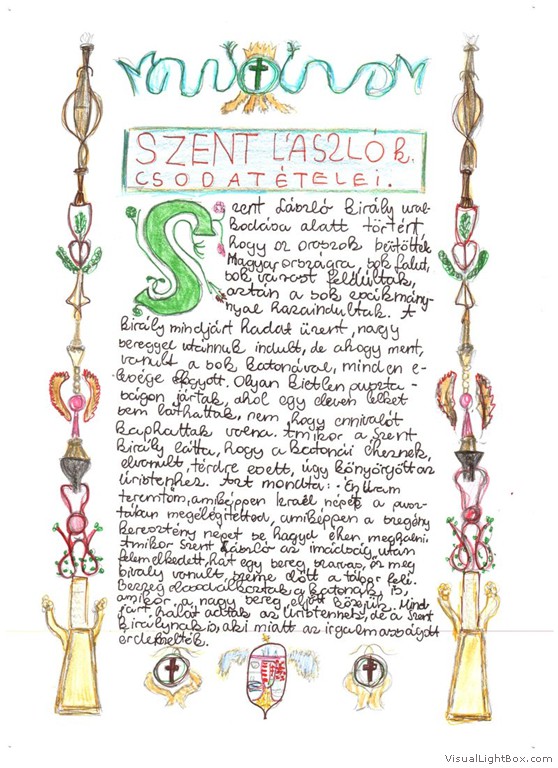 SZENT LÁSZLÓ k.
CSODATÉTELEI.
Szent László király ural-
kodása alatt történt,
hogy az oroszok betöttek
Magyarországra sok falut,
sok várost feldúltak,
aztán a sok zsákmány-
nyal hazaindultak. A
király mindjárt hadat üzent, nagy
sereggel utánnuk indult, de ahogy ment,
vonult a sok katonával, minden e-
lesége elfogyott. Olyan kietlen puszta-
ságon jártak, ahol egy eleven lelket
sem láthattak, nem hogy ennivalót
kaphattak volna. Amikor a Szent
király látta, hogy a katonái éheznek,
elvonult, térdre esett, úgy könyörgött az
Úristenhez. Azt mondta: Én Uram
teremtőm, amiképpen Izrael népét a pusz-
tában megelégítetted, amiképpen a szegény
keresztény népet se hagyd éhen meghalni.
Amikor Szent László az imádság után
felemelkedett, hát egy sereg szarvas, és meg
bivaly vonult szeme előtt a tábor felé.
csodálkoztak a katonák is,
amikor a nagy sereg közéjük. Mind-
járt hálát adtak az Úristennek, de a Szent
királynak is, aki miatt az irgalmasságot
érdemelték.
VisualLightBox.com